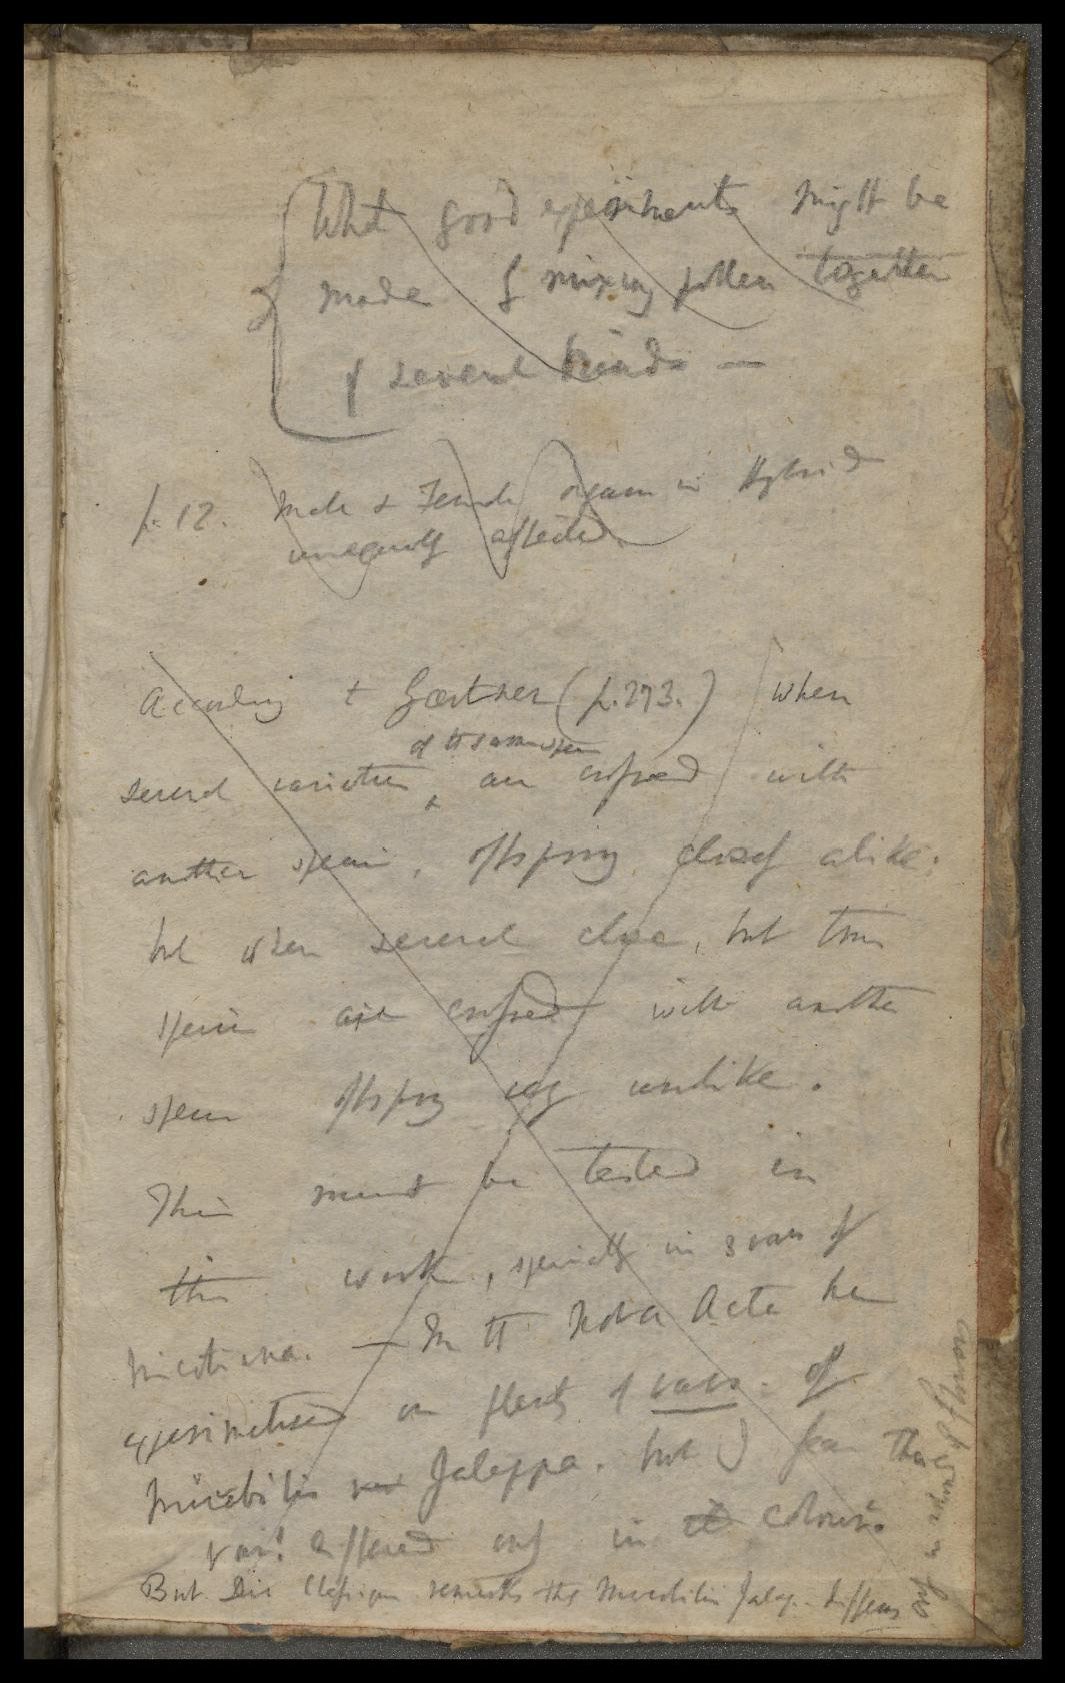 What good experiments might be
made of mixing pollen together
of several kinds —
p. 12. Male & Female organs in Hybrid
unequally affected.
According to Gærtner (p. 273.) when
of the same species
several varieties are crossed with
another species, offspring closely alike.
but when several close, but true
species are crossed with another
species offspring very unlike.
This must be tested in
this work, specially in 3 vars of
Nicotiana. — In the Nova Acta he
experimetised on plenty of vars. of
Mirabilis Jalappa. but I fear the
vars. differed only in colours.
But Lecoq remarks the Mirabilis Jalap. differs
only in colours of flowers